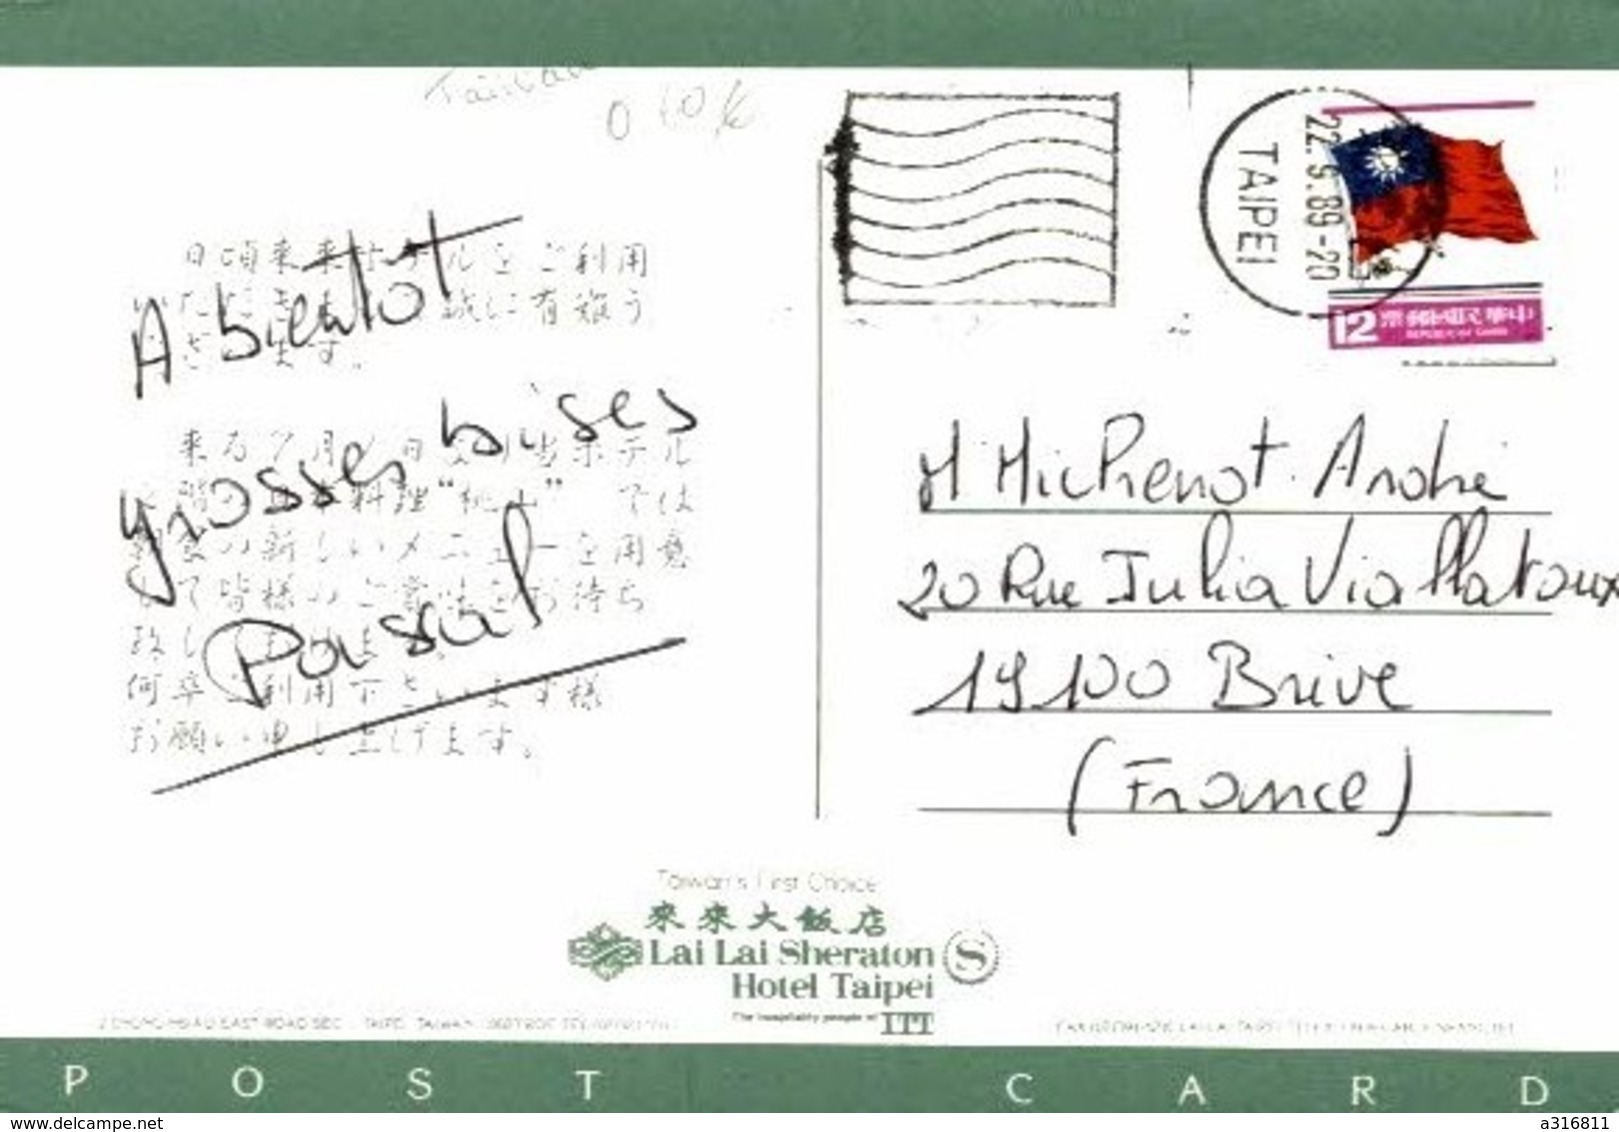 Taiwan
0.60 €
TAIPEI
22.9.89-20
12 票郵國民華中
REPUBLIC OF CHINA
日頃来来ホテルをご利用
いただきまして誠に有難う
ございます。
来る7月1日より当ホテル
料理“桃山”では
の新しいメニューを用意
して皆様のご賞味をお待ち
致しております。
何卒ご利用下さいます様
お願い申し上げます。
A bientot
grosses bises
Pascal
M Michenot André
20 Rue Julia Viallatoux
19100 Brive
(France)
Taiwan's First Choice
來來大飯店
Lai Lai Sheraton S
Hotel Taipei
The hospitality people of ITT
POST CARD
delcampe.net
a316811